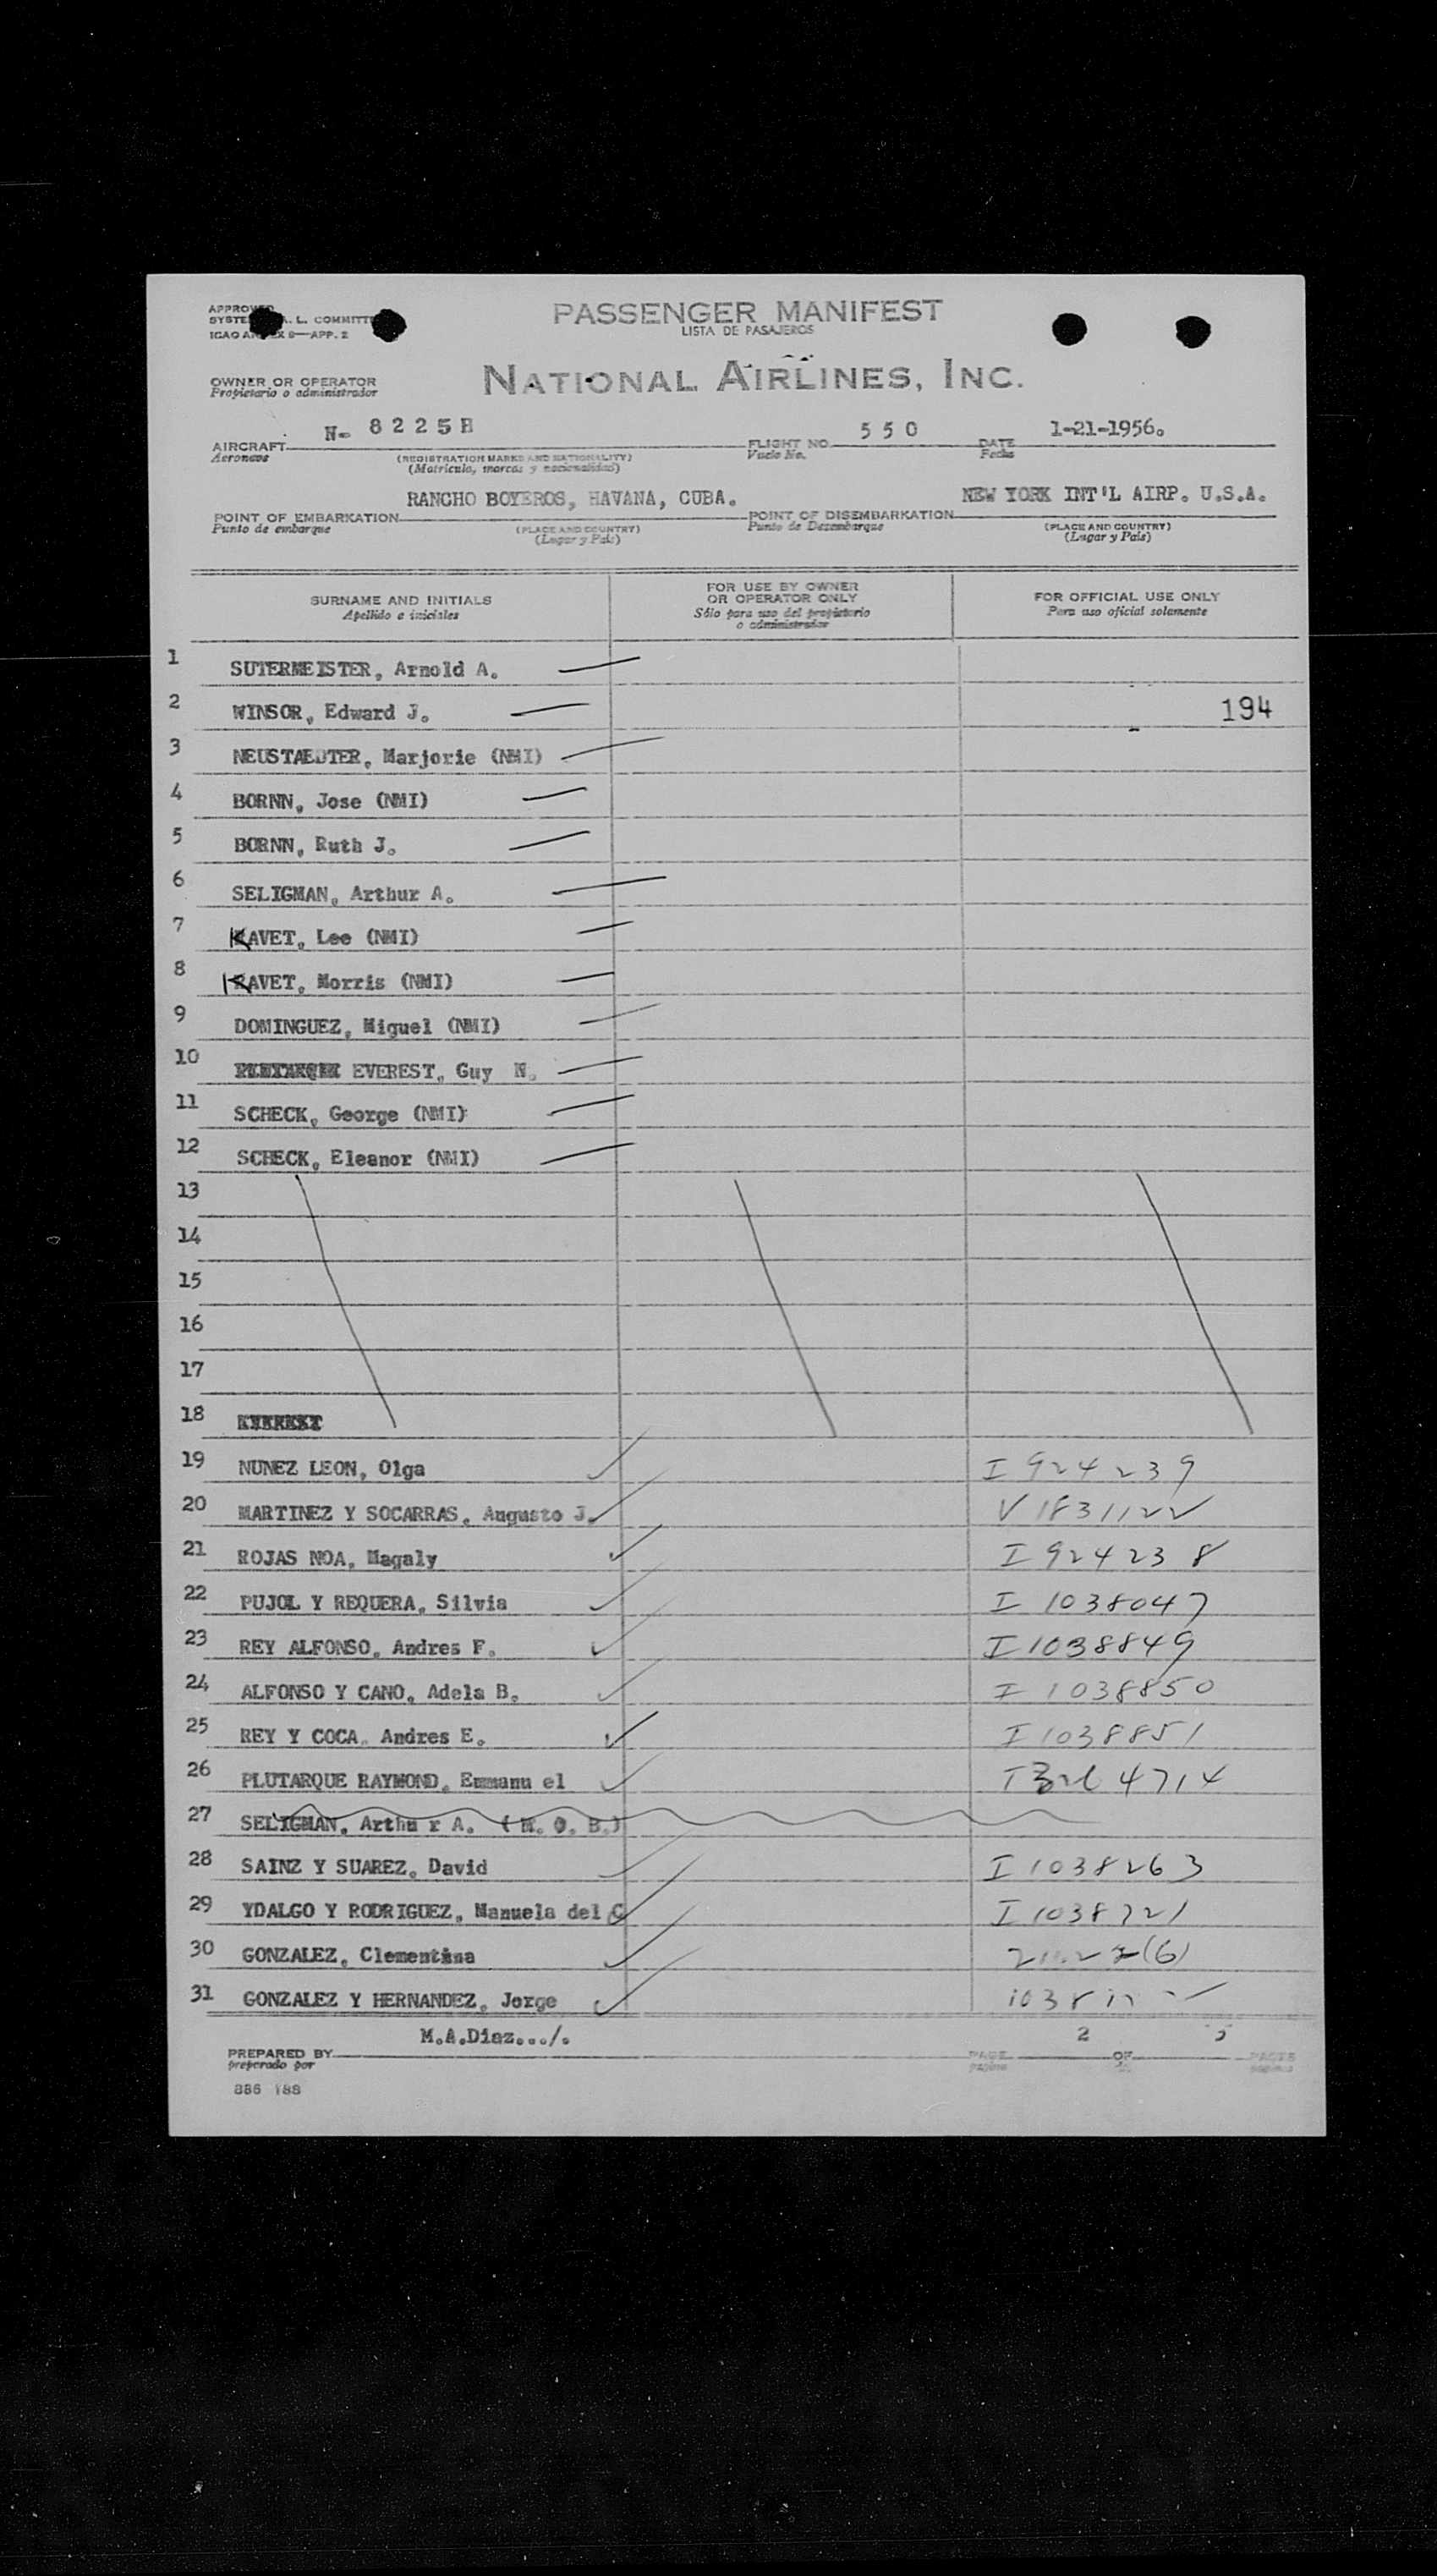 PASSENGER MANIFEST
LISTA DE PASAJEROS
L. COMMITT
ICAO 9—APP. 2
OWNER OR OPERATOR
Propietario o administrador
NATIONAL AIRLINES, INC.
AIRCRAFT N- 8225H FLIGHT NO. 550 DATE 1-21-1956.
Aeronave (REGISTRATION MARKS AND NATIONALITY) Vuelo No. Fecha
(Matricula, marcas y nacionalidad)
RANCHO BOYEROS, HAVANA, CUBA. NEW YORK INT'L AIRP. U.S.A.
POINT OF EMBARKATION POINT OF DISEMBARKATION
Punto de embarque (PLACE AND COUNTRY) Punto de Desembarque (PLACE AND COUNTRY)
(Lugar y País) (Lugar y País)
SURNAME AND INITIALS FOR USE BY OWNER OR OPERATOR ONLY FOR OFFICIAL USE ONLY
Apellido e iniciales Sólo para uso del propietario o administrador Para uso oficial solamente
1 SUTERMEISTER, Arnold A.
2 WINSOR, Edward J. 194
3 NEUSTAEDTER, Marjorie (NMI)
4 BORNN, Jose (NMI)
5 BORNN, Ruth J.
6 SELIGMAN, Arthur A.
7 KAVET, Lee (NMI)
8 KAVET, Morris (NMI)
9 DOMINGUEZ, Miguel (NMI)
10 EVEREST, Guy N.
11 SCHECK, George (NMI)
12 SCHECK, Eleanor (NMI)
13
14
15
16
17
18
19 NUNEZ LEON, Olga I 924239
20 MARTINEZ Y SOCARRAS, Augusto J. V 1831122
21 ROJAS NOA, Magaly I 924238
22 PUJOL Y REQUERA, Silvia I 1038047
23 REY ALFONSO, Andres F. I 1038849
24 ALFONSO Y CANO, Adela B. I 1038850
25 REY Y COCA, Andres E. I 1038851
26 PLUTARQUE RAYMOND, Emmanu el 4714
27 SELIGMAN, Arthu r A. (N. O. B.)
28 SAINZ Y SUAREZ, David I 1038263
29 YDALGO Y RODRIGUEZ, Manuela del C I 1038721
30 GONZALEZ, Clementina
31 GONZALEZ Y HERNANDEZ, Jorge
PREPARED BY M.A.Diaz.../. PAGE 2 OF PAGES
preparado por
886 188